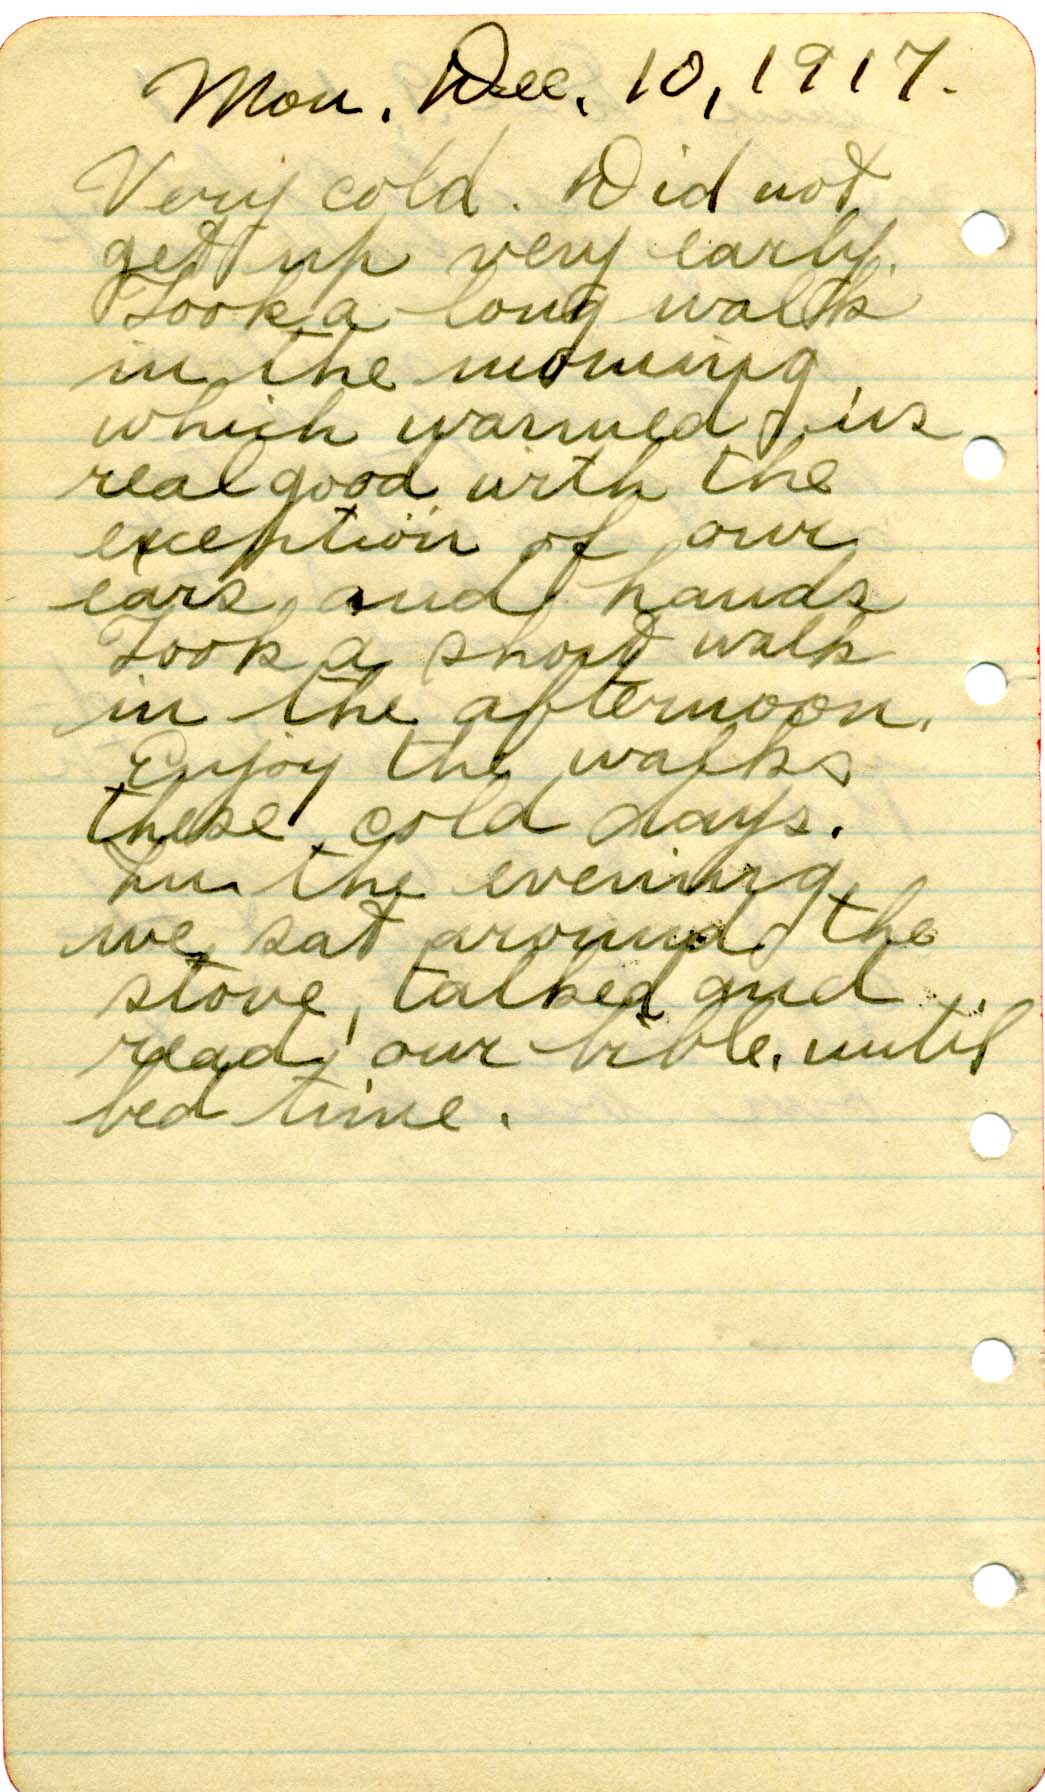 Mon. Dec. 10, 1917.
Very cold. Did not
get up very early.
Took a long walk
in the morning,
which warmed us
real good with the
exception of our
ears and hands
Took a short walk
in the afternoon.
Enjoy the walks
these cold days.
In the evening
we sat around the
stove, talked and
read our bible. until
bed time.